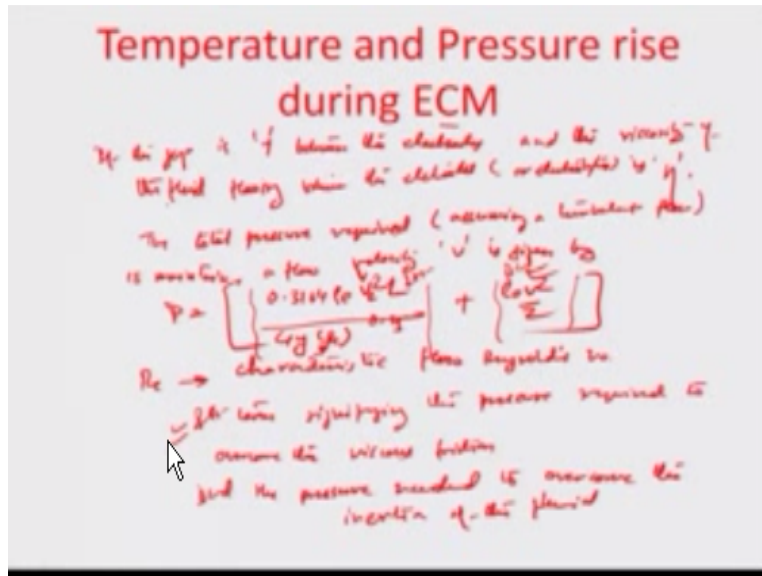 Temperature and Pressure rise
during ECM
If the gap is 'y' between the electrodes and the viscosity of
the fluid flowing the electrodes (or electrolyte) is 'η'.
The total pressure required (assuming a turbulent flow)
is maintain a flow velocity 'v' is given by
P = [ 0.3164 ρe v² L + ρe v² / 2 ]
4y (Re) 0.25
Re → characteristic flow Reynolds no
1st term signifying the pressure required to
overcome the viscous friction
2nd the pressure needed to overcome the
inertia of the fluid